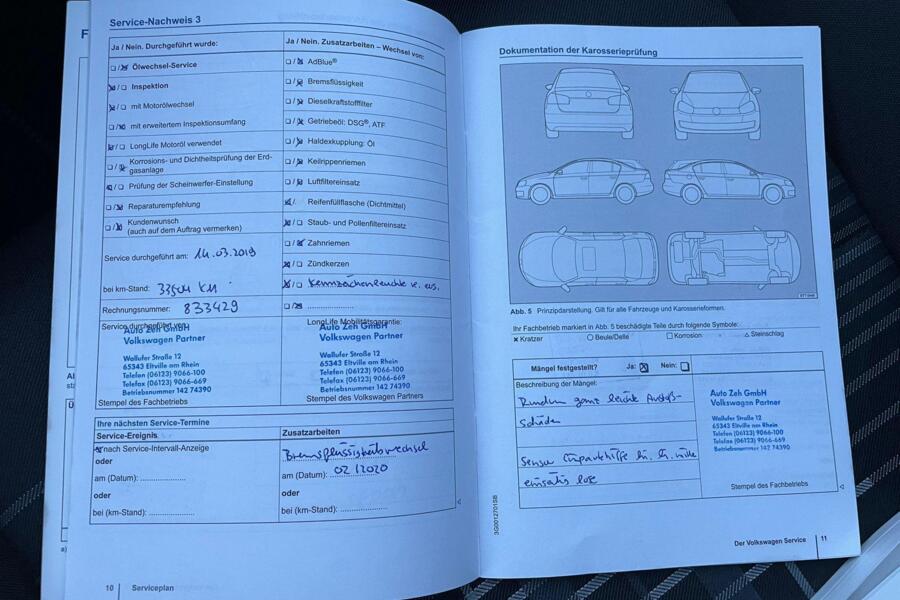 Service-Nachweis 3
Ja / Nein. Durchgeführt wurde:
Ölwechsel-Service
Inspektion
mit Motorölwechsel
mit erweitertem Inspektionsumfang
LongLife Motoröl verwendet
Korrosions- und Dichtheitsprüfung der Erd-
gasanlage
Prüfung der Scheinwerfer-Einstellung
Reparaturempfehlung
Kundenwunsch
(auch auf dem Auftrag vermerken)
Service durchgeführt am: 14.03.2019
bei km-Stand: 33504 KM
Rechnungsnummer: 833429
Service durchgeführt von:
Auto Zeh GmbH
Volkswagen Partner
Wallufer Straße 12
65343 Eltville am Rhein
Telefon (06123) 9066-100
Telefax (06123) 9066-669
Betriebsnummer 142 74390
Stempel des Fachbetriebs
Ja / Nein. Zusatzarbeiten – Wechsel von:
AdBlue®
Bremsflüssigkeit
Dieselkraftstofffilter
Getriebeöl: DSG®, ATF
Haldexkupplung: Öl
Keilrippenriemen
Luftfiltereinsatz
Reifenfüllflasche (Dichtmittel)
Staub- und Pollenfiltereinsatz
Zahnriemen
Zündkerzen
Kennzeichenleuchte re. ers.
LongLife Mobilitätsgarantie:
Auto Zeh GmbH
Volkswagen Partner
Wallufer Straße 12
65343 Eltville am Rhein
Telefon (06123) 9066-100
Telefax (06123) 9066-669
Betriebsnummer 142 74390
Stempel des Volkswagen Partners
Ihre nächsten Service-Termine
Service-Ereignis
nach Service-Intervall-Anzeige
oder
am (Datum): ....................
oder
bei (km-Stand): ...............
Zusatzarbeiten
Bremsflüssigkeitswechsel
am (Datum): 02/2020
oder
bei (km-Stand): ...............
10 Serviceplan
Dokumentation der Karosserieprüfung
Abb. 5 Prinzipdarstellung. Gilt für alle Fahrzeuge und Karosserieformen.
Ihr Fachbetrieb markiert in Abb. 5 beschädigte Teile durch folgende Symbole:
Kratzer Beule/Delle Korrosion Steinschlag
Mängel festgestellt? Ja: Nein:
Beschreibung der Mängel:
Rundum ganz leichte
schäden
Sensor
lose
Auto Zeh GmbH
Volkswagen Partner
Wallufer Straße 12
65343 Eltville am Rhein
Telefon (06123) 9066-100
Telefax (06123) 9066-669
Betriebsnummer 142 74390
Stempel des Fachbetriebs
3G0012701SB
Der Volkswagen Service 11